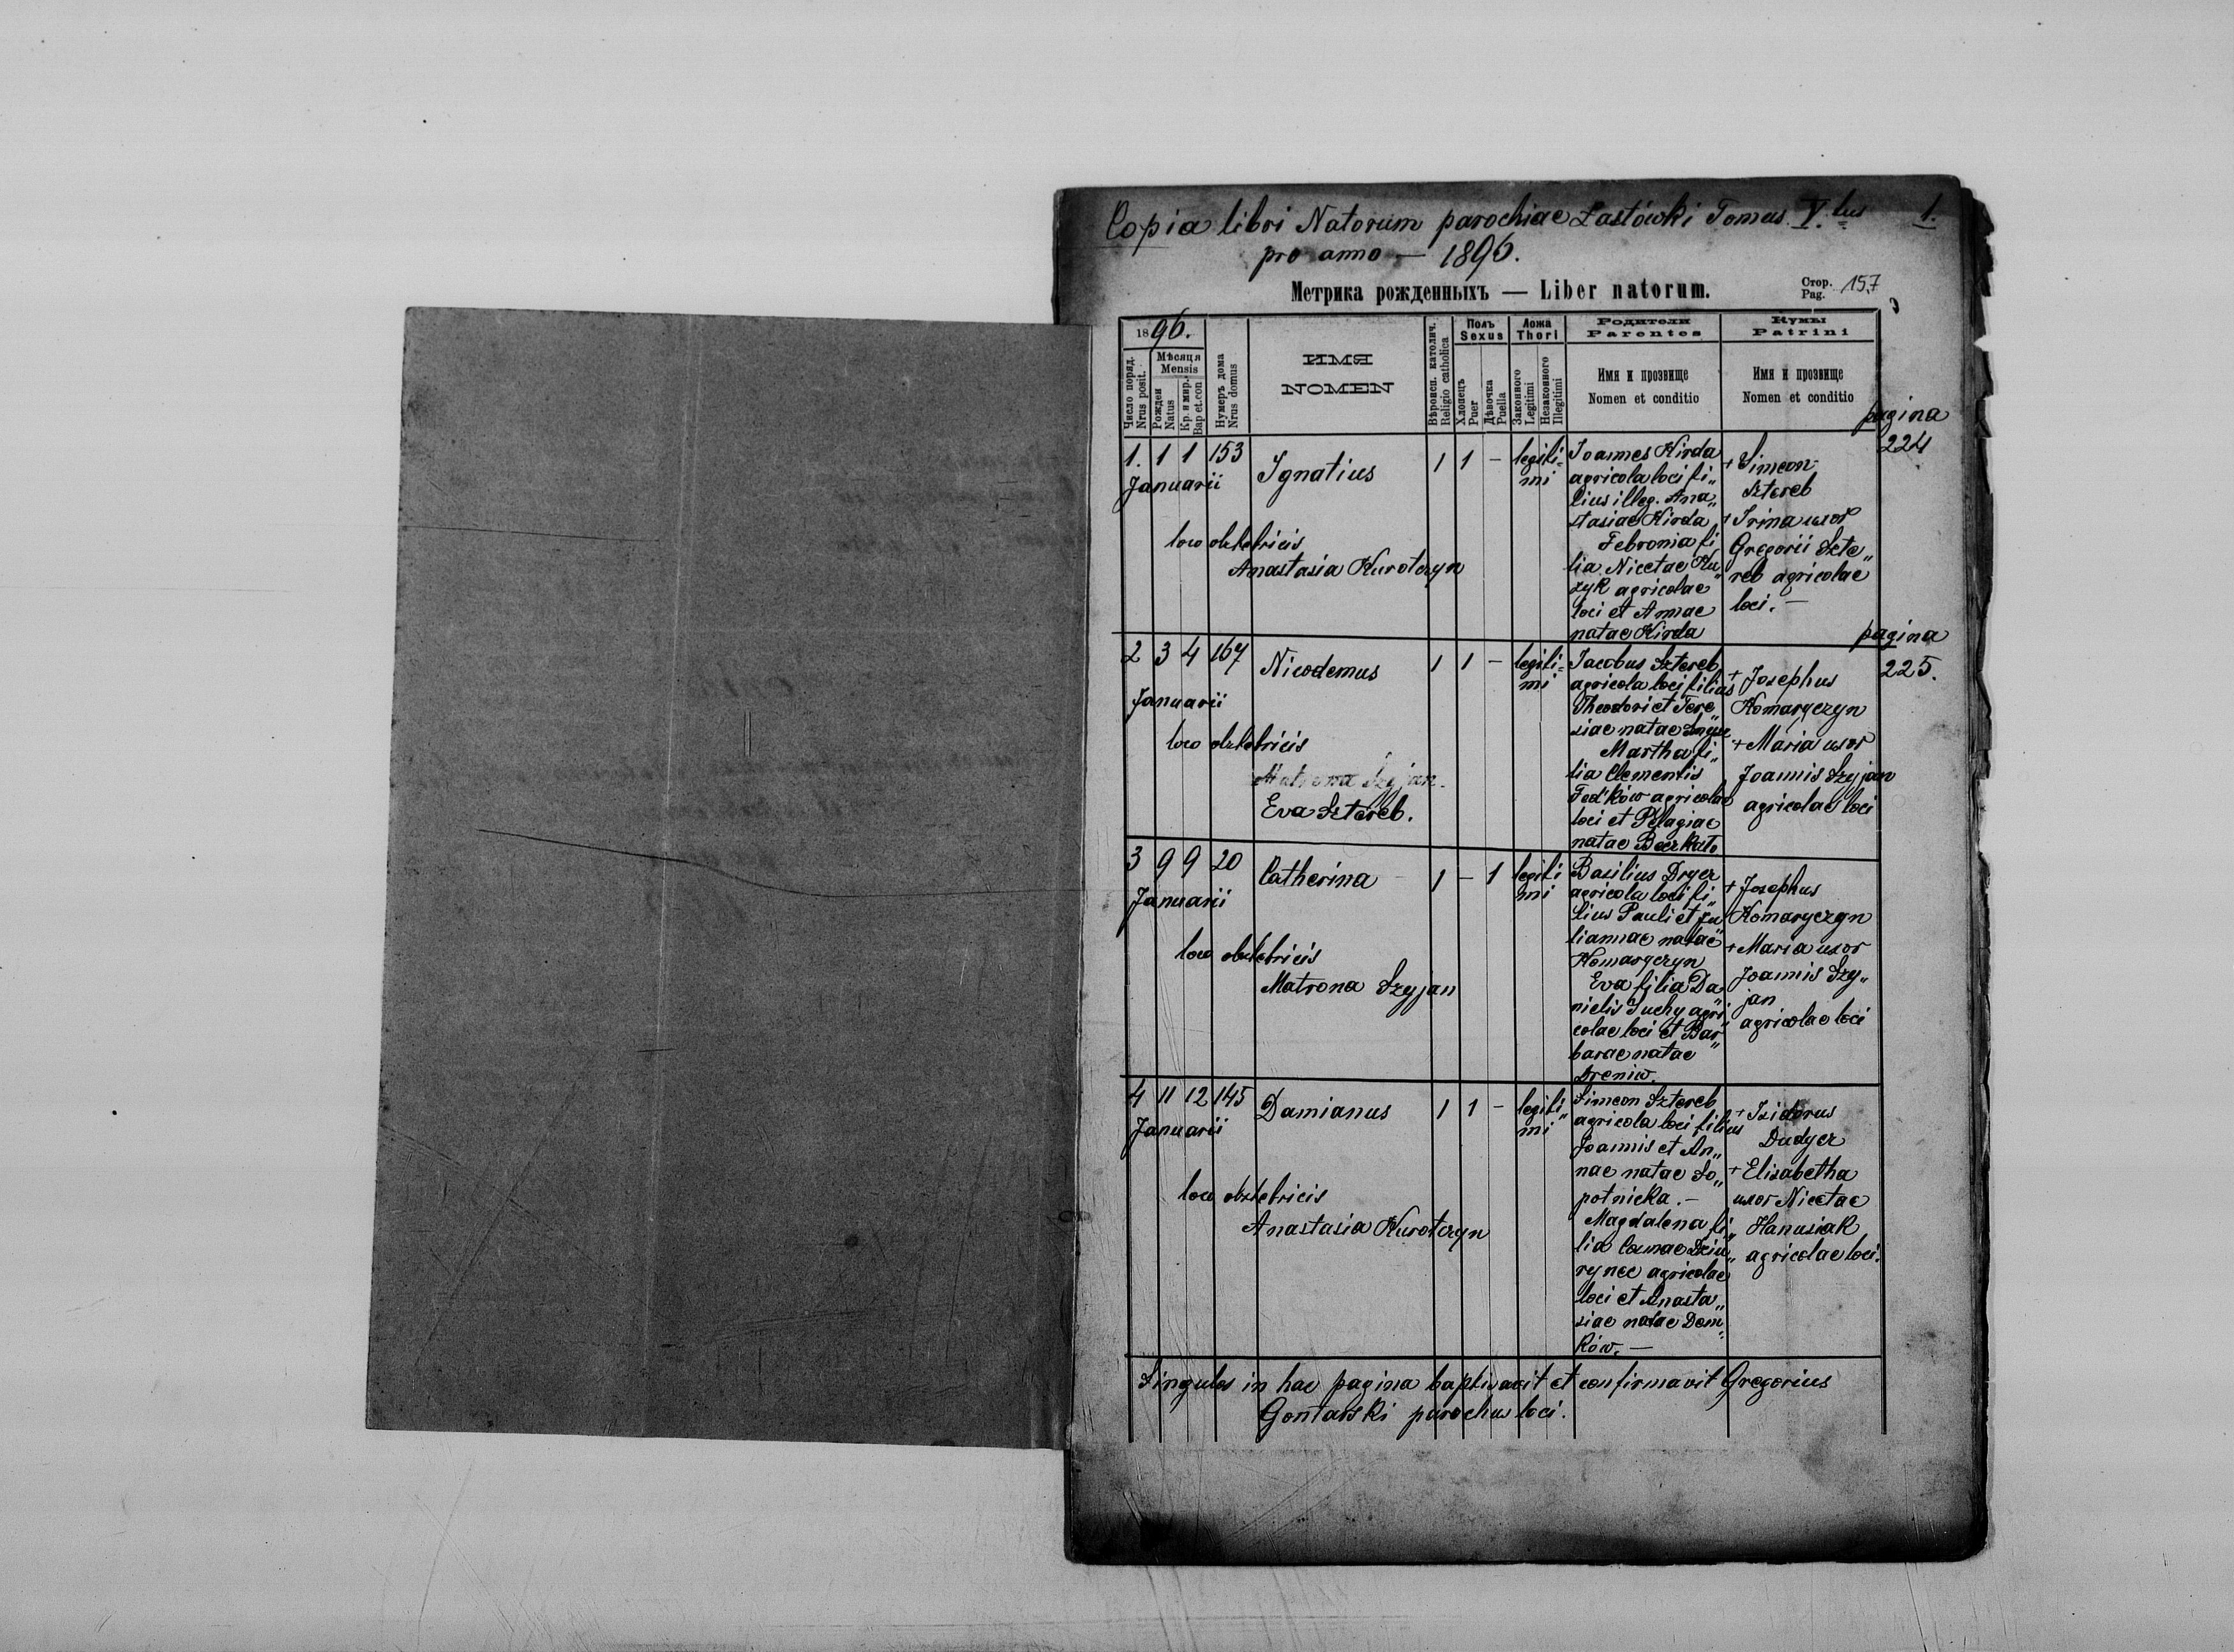 Copia libri Natorum parochiae Łastówki Tomus V.tus 1.
pro anno — 1896.
Метрика рожденныхъ — Liber natorum.
Стор. Pag. 157
1896.
Число поряд. Nrus posit.
Мѣсяця Mensis
Рожден Natus
Кр. и мир. Bap et.con
Нумеръ дома Nrus domus
ИМЯ
NOMEN
Вѣроисп. католич. Religio catholica
Полъ Sexus
Хлопецъ Puer
Дѣвочка Puella
Ложа Thori
Законного Legitimi
Незаконного Illegitimi
Родители
Parentes
Имя и прозвище
Nomen et conditio
Кумы
Patrini
Имя и прозвище
Nomen et conditio
pagina
224
1. 1 1 153 Ignatius 1 1 – legiti=
mi
Januarii
loco obstetricis
Anastasia Kurotczyn
Joannes Hirda
agricola loci fi„
lius illeg. Ana„
stasiae Hirda
Febronia fi
lia Nicetae Ku„
zyk agricolae
loci et Annae
natae Hirda
+ Simeon
Sztereb
+ Irina uxor
Gregorii Szte„
reb agricolae
loci. –
pagina
225.
2 3 4 167 Nicodemus 1 1 – legiti=
mi
Januarii
loco obstetricis
Matrona Szyjan.
Eva Sztereb.
Jacobus Sztereb
agricola loci filius
Theodori et Tere„
siae natae
Martha fi„
lia Clementis
Fed'ków agricolae
loci et Pelagiae
natae
+ Josephus
Komaryczyn
+ Maria uxor
Joannis Szyjan
agricolae loci
3 9 9 20 Catherina 1 – 1 legiti
mi
Januarii
loco obstetricis
Matrona Szyjan
Basilius Dryer
agricola loci fi„
lius Pauli et Ju
liannae natae
Komaryczyn
Eva filia Da
nielis Suchy agri„
colae loci et Bar„
barae natae
Dreniw.
+ Josephus
Komaryczyn
+ Maria uxor
Joannis Szy„
jan
agricolae loci
4 11 12 145 Damianus 1 1 – legiti„
mi
Januarii
loco obstetricis
Anastasia Kurotczyn
Simeon Sztereb
agricola loci filius
Joannis et An„
nae natae So„
potnicka. –
Magdalena fi„
lia Cosmae
rynec agricolae
loci et Anasta„
siae natae Dom„
ków. —
+ Isidorus
Dudycz
+ Elisabetha
uxor Nicetae
Hanusiak
agricolae loci.
Singulos in hac pagina baptisavit et confirmavit Gregorius
Gontarski parochus loci.